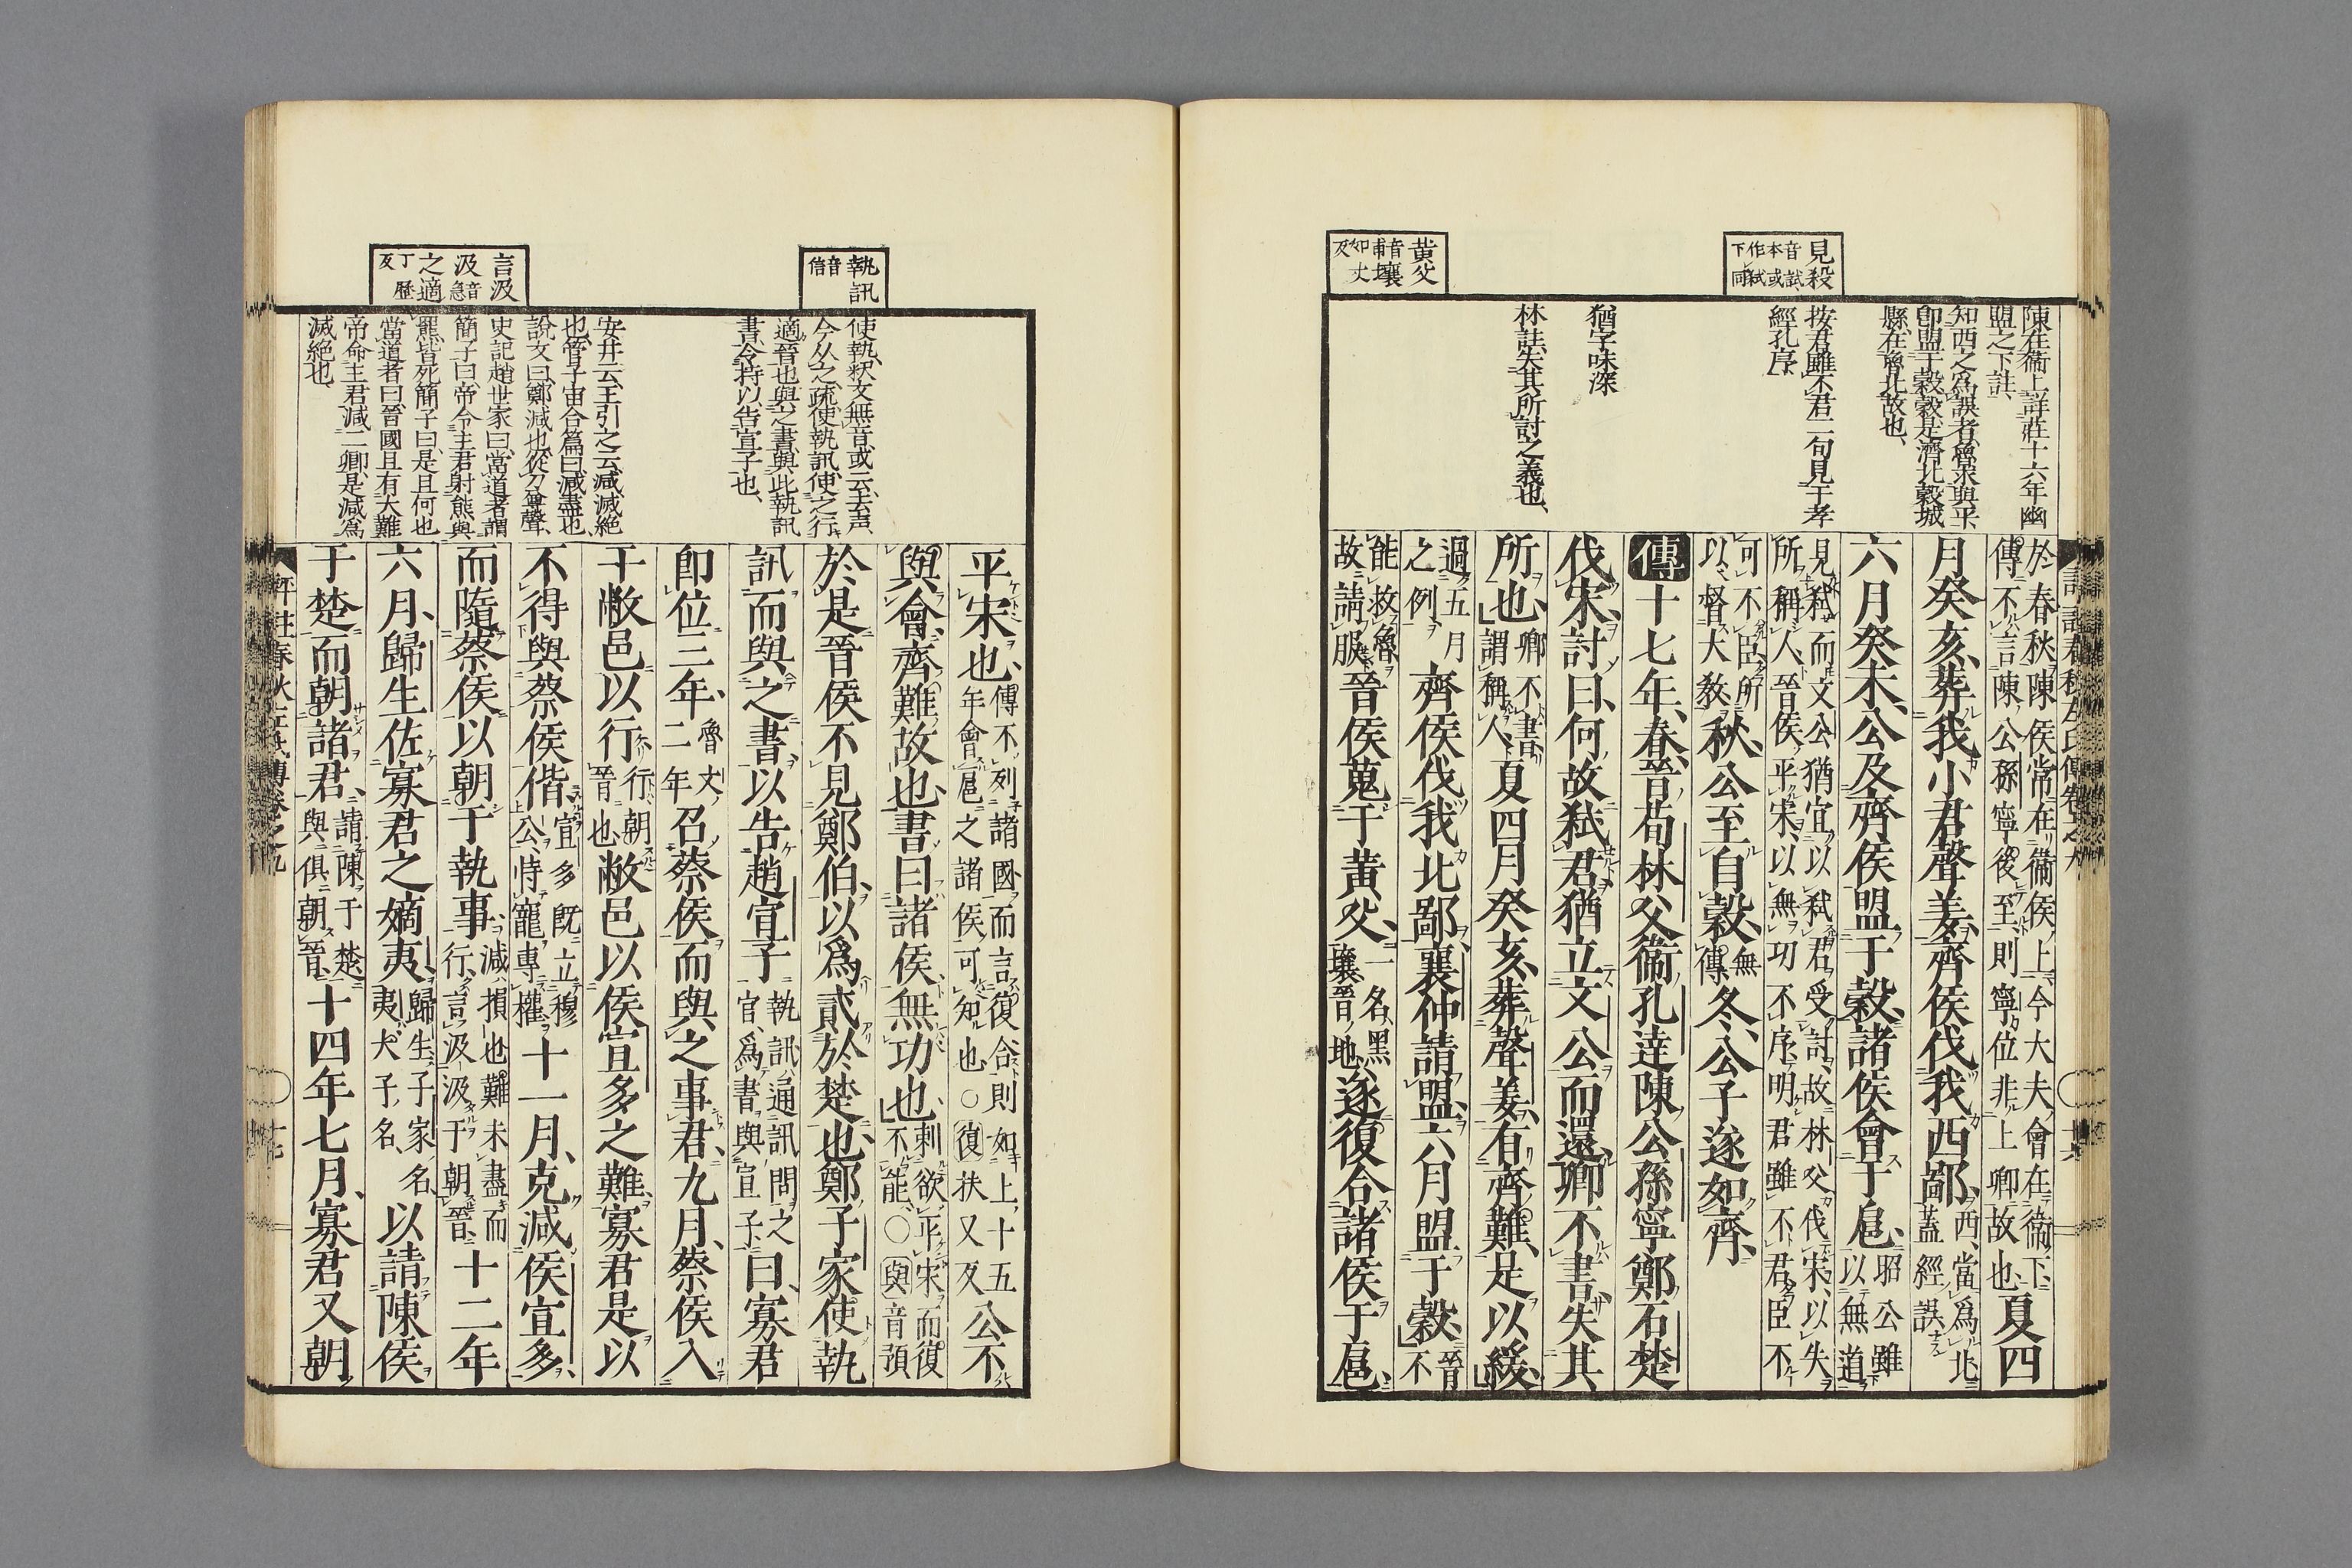 見殺 音試本或作弒下同
黃父 音甫壤如丈反
陳在衞上詳莊十六年幽
盟之下註
知西之爲誤者魯界與平
卽盟于穀穀是濟北穀城
縣在魯北故也
按君雖不君二句見于孝
經孔序
猶字味深
林註失其所討之義也
於春秋陳侯常在衞侯上今大夫會在衞下傳不言陳公孫寧後至則寧位非上卿故也夏四
月癸亥葬我小君聲姜齊侯伐我西鄙西當爲北蓋經誤
六月癸未公及齊侯盟于穀諸侯會于扈昭公雖以無道
見弒而文公猶宜以弒君受討故林父伐宋以失所稱人晉侯平宋以無功不序明君雖不君臣不
可不臣所以督大敎秋公至自穀無傳冬公子遂如齊
傳十七年春晉荀林父衞孔達陳公孫寧鄭石楚
伐宋討曰何故弒君猶立文公而還卿不書失其
所也卿不書謂稱人夏四月癸亥葬聲姜有齊難是以緩
過五月之例齊侯伐我北鄙襄仲請盟六月盟于穀晉不
能救魯故請服晉侯蒐于黃父一名黑壤晉地遂復合諸侯于扈
執訊 音信
言汲 汲音急 之適 丁歷反
使執釈文無音或云去声
今从之疏使執訊使之行
適晉也與之書與此執訊
書令持以告宣子也
安井云王引之云減減絶
也管子宙合篇曰減盡也
說文曰鄭減也從刀尊聲
史記趙世家曰當道者謂
簡子曰帝令主君射熊與
羆皆死簡子曰是且何也
當道者曰晉國且有大難
帝命主君減二卿是減爲
滅絶也
平宋也傳不列諸國而言復合則如上十五年會扈之諸侯可知也○復扶又反公不
與會齊難故也書曰諸侯無功也刺欲平宋而復不能○與音預
於是晉侯不見鄭伯以爲貳於楚也鄭子家使執
訊而與之書以告趙宣子執訊通訊問之官爲書與宣子曰寡君
卽位三年魯文二年召蔡侯而與之事君九月蔡侯入
于敝邑以行行朝晉也敝邑以侯宣多之難寡君是以
不得與蔡侯偕宣多旣立穆公恃寵專權十一月克減侯宣多
而隨蔡侯以朝于執事減損也難未盡而行言汲汲于朝晉十二年
六月歸生佐寡君之嫡夷歸生子家名夷大子名以請陳侯
于楚而朝諸君請陳于楚與俱朝晉十四年七月寡君又朝